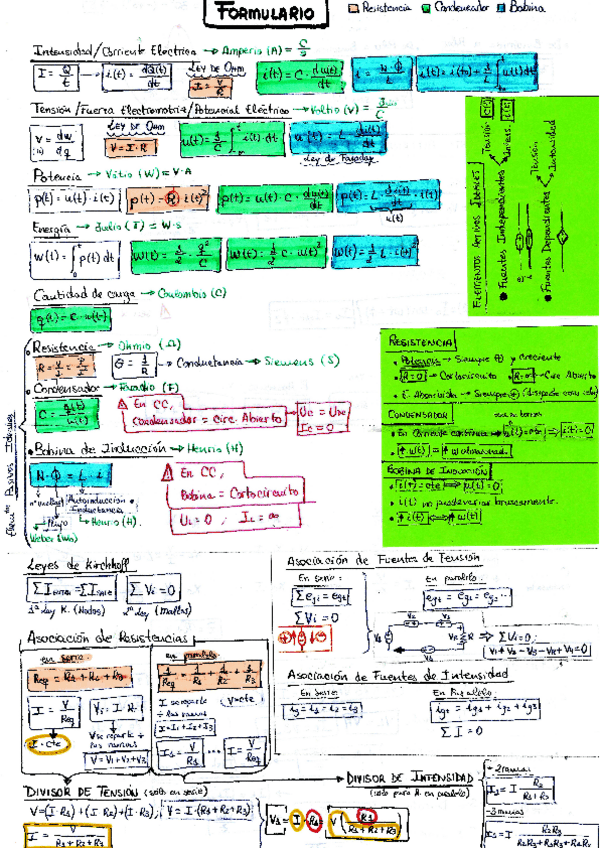 FORMULARIO
Resistencia Condensador Bobina
Intensidad/Corriente Eléctrica → Amperio (A) = C/s
I = Q/t → i(t) = dQ(t)/dt
Ley de Ohm
I = V/R
i(t) = C · du(t)/dt
i = N·Φ/L
Tensión/Fuerza Electromotriz/Potencial Eléctrico → Voltio (V)
V = dw/dq
Ley de Ohm
V = I·R
u(t) = 1/C ∫ i(t)·dt
u(t) = L · di(t)/dt
Ley de Faraday
Potencia → Vatio (W) = V·A
p(t) = u(t)·i(t)
p(t) = R·i(t)²
p(t) = u(t)·C·du(t)/dt
p(t) = L·di(t)/dt·i(t)
u(t)
Energía → Julio (J) = W·s
w(t) = ∫ p(t) dt
w(t) = 1/2 · q²/C
w(t) = 1/2 · C·u(t)²
w(t) = 1/2 · L·i(t)²
ELEMENTOS ACTIVOS IDEALES
• Fuentes Independientes
Tensión
Intens.
• Fuentes Dependientes
Tensión
Intensidad
Cantidad de carga → Coulombio (C)
q(t) = C·u(t)
Elemento Pasivos Ideales
• Resistencia → Ohmio (Ω)
G = 1/R → Conductancia → Siemens (S)
• Condensador → Faradio (F)
C = q(t)/u(t)
En CC,
Condensador = Circ. Abierto
Ic = 0
• Bobina de Inducción → Henrio (H)
N·Φ = L·i
nº vueltas
Flujo
Weber (Wb)
Autoinducción
Inductancia
Henrio (H).
En CC,
Bobina = Cortocircuito
UL = 0 ; IL = ∞
RESISTENCIA
• Potencia → Siempre ⊕ y creciente
• R=0 → Cortocircuito R=∞ → Circ Abierto
• E. Absorbida → Siempre ⊕ (disipada como calor)
CONDENSADOR
• En Corriente continua → u(t) = cte ⇒ i(t)=0
• ↑u(t) = ↑w almacenada.
BOBINA DE INDUCCIÓN
• i(t) = cte ⟺ u(t) = 0
• i(t) no puede variar bruscamente.
• ↑i(t) ⟺ ↑w(t)
Leyes de Kirchhoff
1ª Ley K. (Nodos)
∑Vi = 0
2ª Ley (Mallas)
Asociación de Fuentes de Tensión
En serie:
∑egi = egt
∑Vi = 0
En paralelo.
egt = eg1 = eg2...
⇒ ∑Vi = 0
V1 + V2 - V3 - VR + V4 = 0
Asociación de Resistencias
en serie
Req = R1 + R2 + R3
I = V/Req
V1 = I·R
I = cte
V se reparte
÷ las ramas
V = V1 + V2 + V3
en paralelo
1/Req = 1/R1 + 1/R2 + 1/R3
I se reparte
÷ las ramas
V = cte
I = I1 + I2 + I3
I1 = V/R1 ...
Asociación de Fuentes de Intensidad
En Serie
ig = i1 = i2 = i3
En Paralelo
igt = ig1 + ig2 + ig3
∑I = 0
DIVISOR DE TENSIÓN (solo en serie)
V = (I·R1) + (I·R2) + (I·R3) ; V = I·(R1+R2+R3)
I = V/(R1+R2+R3)
V1 = I·R1
V · R1/(R1+R2+R3)
DIVISOR DE INTENSIDAD
(solo para R en paralelo)
→ 2 ramas
→ 3 ramas